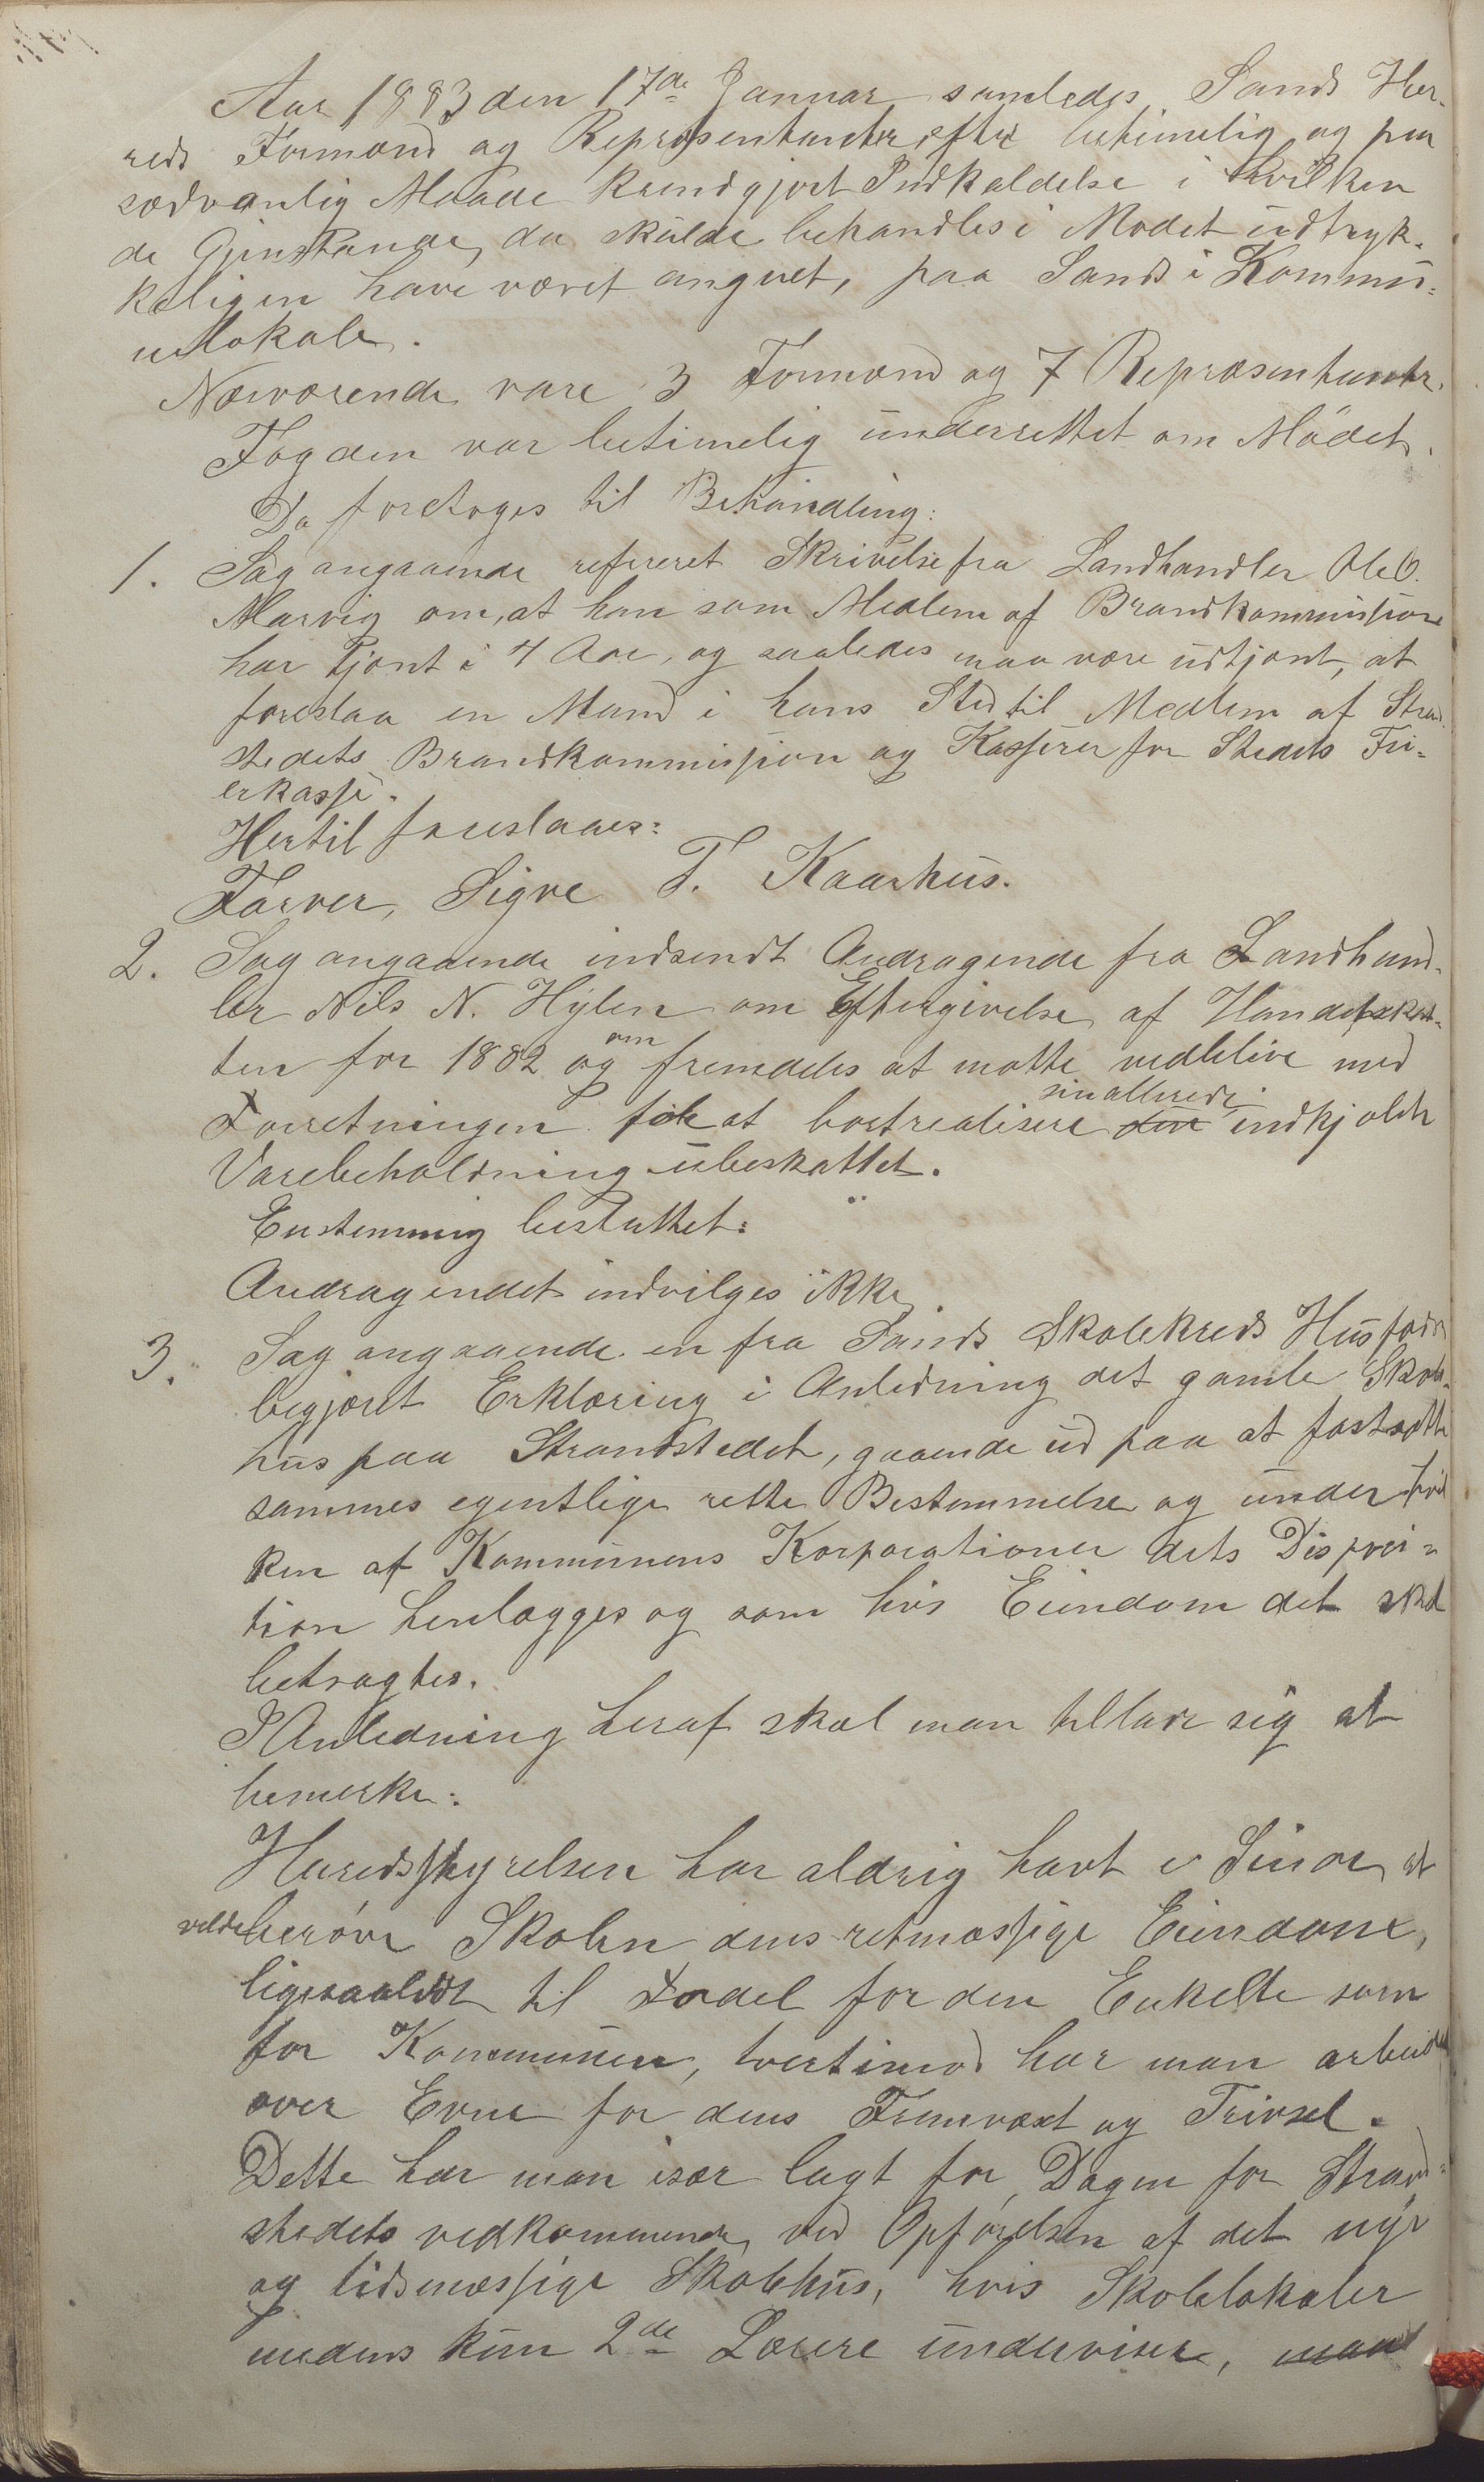 Aar 1883 den 17de Januar samledes Sands Her-
reds Formænd og Repræsentanter, efter betimelig og paa
sædvanlig Maade kundgjort Indkaldelse i hvilken
de Gjenstande, der skulde behandles i Mødet udtryk-
keligen have været angivet, paa Sand i Kommu-
nelokale.
Nærværende vare 3 Formænd og 7 Repræsentanter.
Fogden var betimelig underrettet om Mødet.
Da foretoges til Behandling:
1. Sag angaaende refereret Skrivelse fra Landhandler Ole O.
Marvig om, at han som Medlem af Brandkommissionen
har tjent i 4 Aar, og saaledes maa være udtjent, at
foreslaa en Mand i hans Sted til Medlem af Strand-
stedets Brandkommission og Kasserer for Stedets Fei-
erkasse.
Hertil foreslaaes:
Farver, Sigve T. Kaarhus.
2. Sag angaaende indsendt Andragende fra Landhand-
ler Nils N. Hylen om Eftergivelse af Handelsskat-
ten for 1882 og om fremdeles at maatte vedblive med
Forretningen for at bortrealisere den sin allerede indkjøbte
Varebeholdning ubeskattet.
Enstemmig besluttet:
Andragendet indvilges ikke.
3. Sag angaaende en fra Sands Skolekreds Husfædre
begjæret Erklæring i Anledning det gamle Skole-
hus paa Strandstedet, gaaende ud paa at fastsætte
sammes egentlige rette Bestemmelse og under hvil
ken af Kommunens Korporationer dets Disposi-
tion henlægges og som hvis Eiendom det skal
betragtes.
I Anledning heraf skal man tillade sig at
bemerke:
Heredsstyrelsen har aldrig havt i Sinde at
ville berøve Skolen dens retmæssige Eiendom,
ligesaalidt til Fordel for den Enkelte som
for Kommunen, tvertimod har man arbeidet
over Evne for dens Fremvæxt og Trivsel.
Dette har man især lagt for Dagen for Strand-
stedets vedkommende, ved Opførelsen af det nye
og tidsmæssige Skolehus, hvis Skolelokaler
medens kun 2de Lærere underviser, man